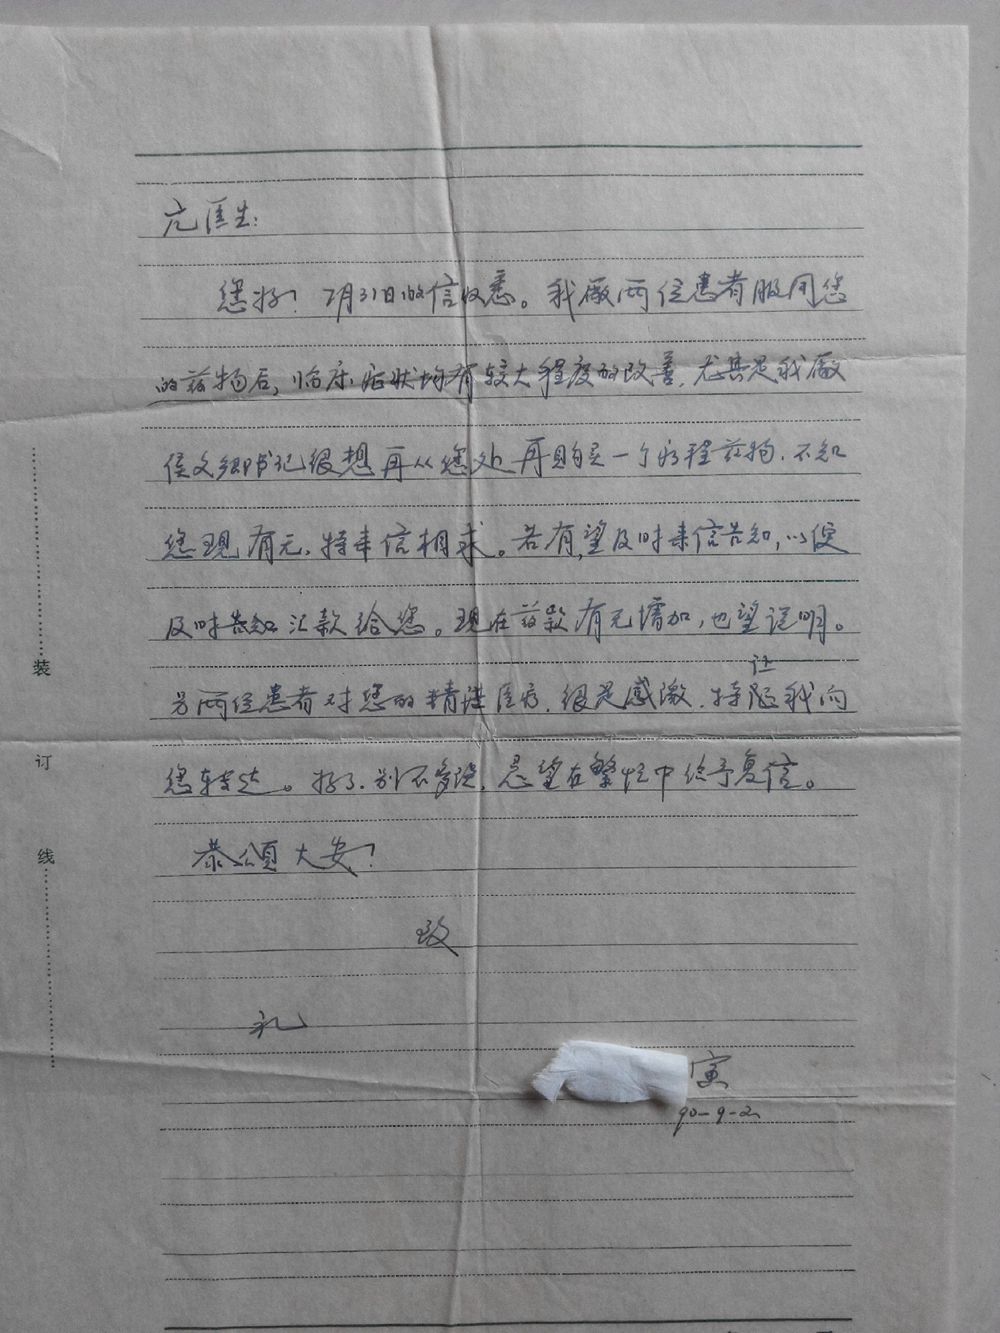 亢医生:
您好!7月31日的信收悉。我厂两位患者服用您
的药物后,临床症状均有较大程度的改善,尤其是我厂
侯文卿书记很想再从您处再购买一个疗程药物,不知
您现有无,特来信相求。若有,望及时来信告知,以便
及时告知汇款给您。现在药款有无增加,也望说明。
另两位患者对您的精湛医疗,很是感激,特让我向
您转达。好了,别不多谈,恳望在繁忙中给予复信。
恭颂大安!
致
礼
寅
90-9-2
装
订
线